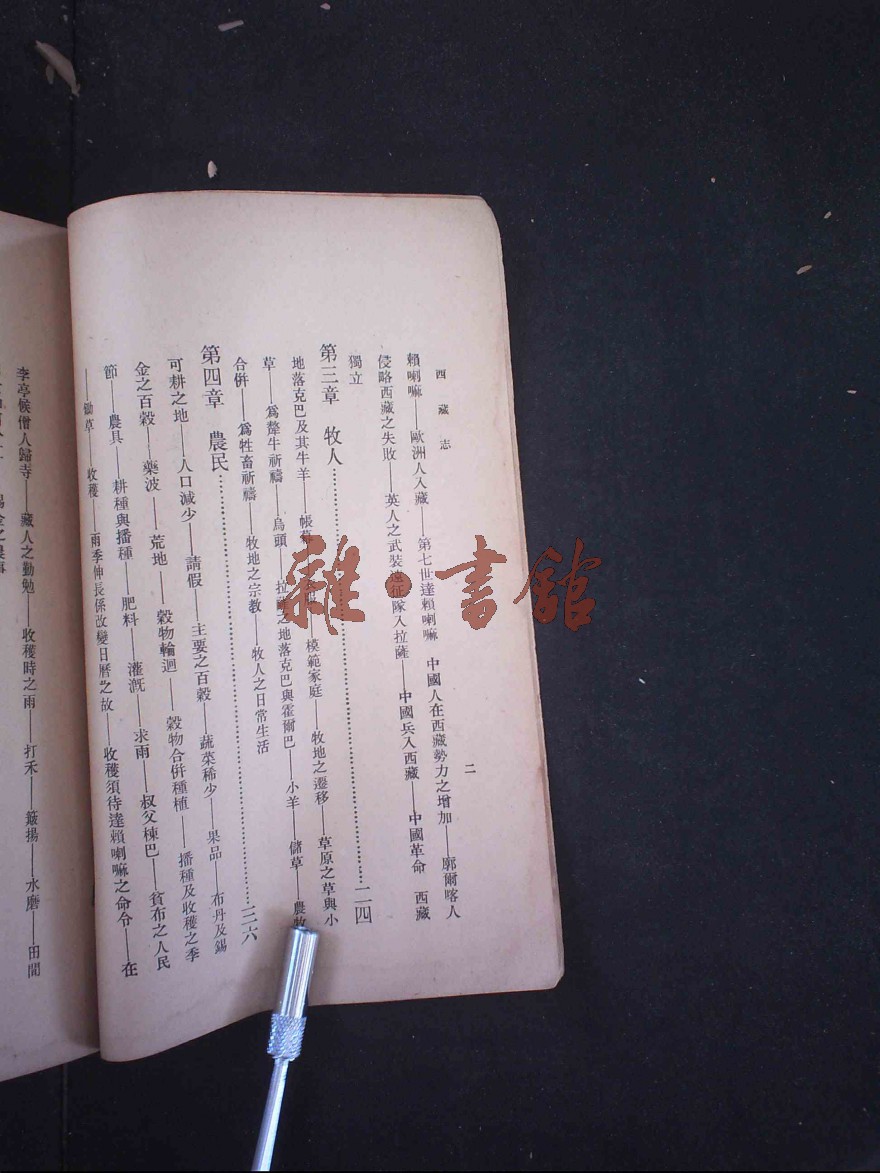 西藏志
二
賴喇嘛——歐洲人入藏——第七世達賴喇嘛 中國人在西藏勢力之增加——廓爾喀人
侵略西藏之失敗——英人之武裝遠征隊入拉薩——中國兵入西藏——中國革命 西藏
獨立
第三章 牧人……二四
地落克巴及其牛羊——帳幕 模範家庭——牧地之遷移——草原之草與小
草——爲犛牛祈禱——烏頭——拉薩之地落克巴與霍爾巴——小羊——儲草——農牧
合併——爲牲畜祈禱——牧地之宗教——牧人之日常生活
第四章 農民……三六
可耕之地——人口減少——請假——主要之百穀——蔬菜稀少——果品——布丹及錫
金之百穀——藥波——荒地——穀物輪迴——穀物合併種植——播種及收穫之季
節——農具——耕種與播種——肥料——灌漑——求雨——叔父棟巴——貧布之人民
——鋤草——收穫——雨季伸長係改變日曆之故——收穫須待達賴喇嘛之命令——在
李亭候僧人歸寺——藏人之勤勉——收穫時之雨——打禾——簸揚——水磨——田間
雜·書館